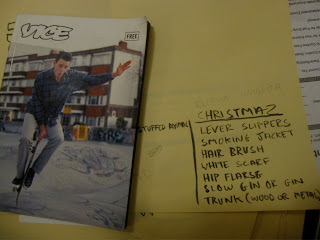 VICE
FREE
STUFFED ANIMAL
CHRISTMAZ
LEVER SLIPPERS
SMOKING JACKET
HAIR BRUSH
WHITE SCARF
HIP FLARSE
SLOW GIN OR GIN
TRUNK (WOOD OR METAL)